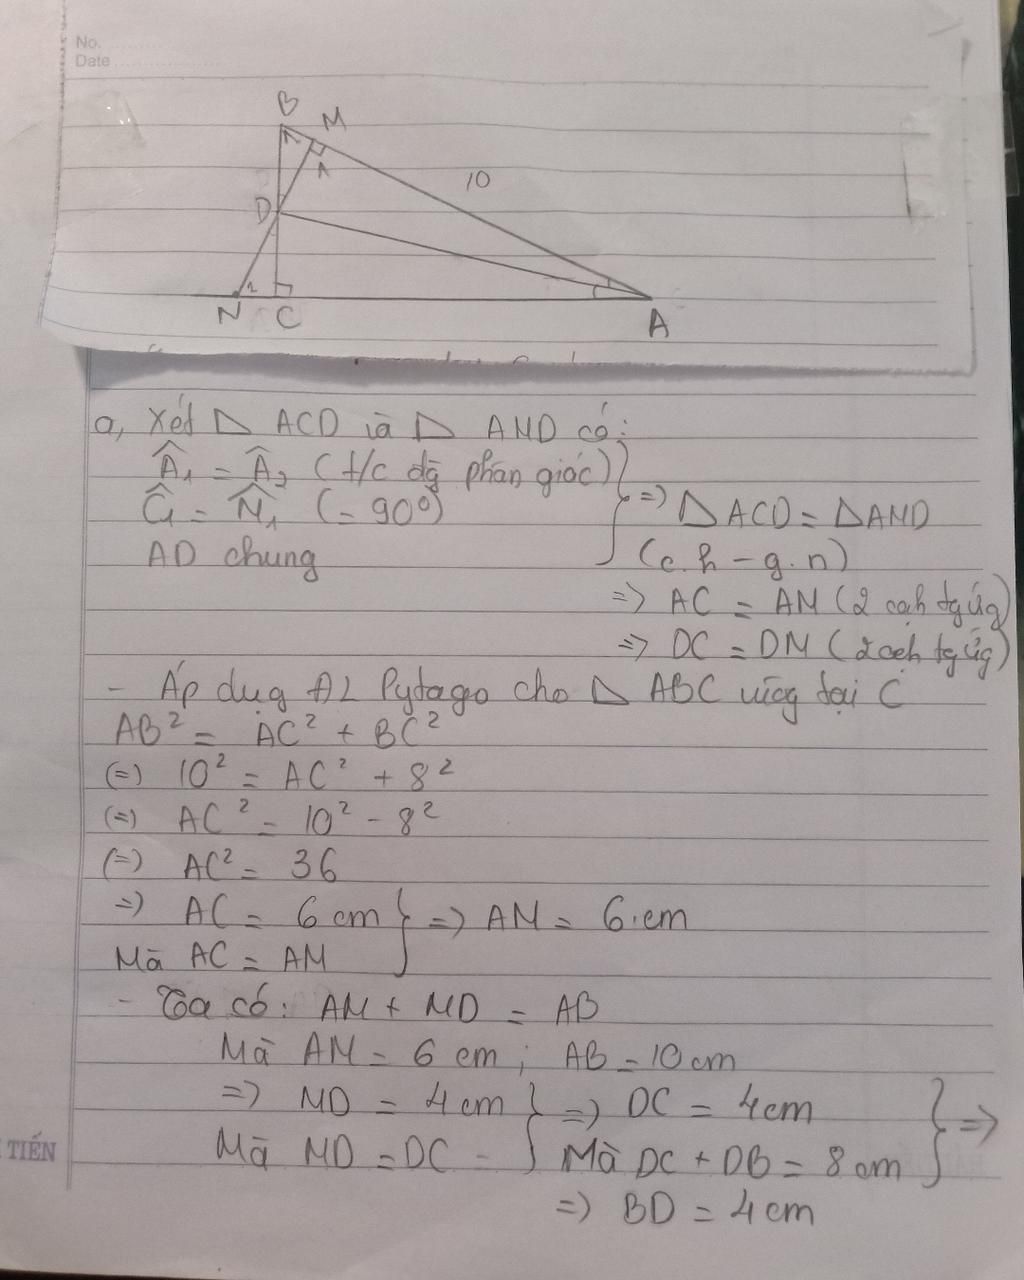 No.
Date
B
M
1
1
10
D
1
N
C
A
a, Xét △ ACD và △ AMD có:
Â₁ = Â₂ (t/c đg phân giác)
Ĉ₁ = M̂₁ (= 90°)
=> △ACD = △AMD
AD chung
(c.h - g.n)
=> AC = AM (2 cạh tg ứg)
=> DC = DM (2 cạh tg ứg)
- Áp dụg ĐL Pytago cho △ ABC vuôg tại C
AB² = AC² + BC²
(=) 10² = AC² + 8²
(=) AC² = 10² - 8²
(=) AC² = 36
=> AC = 6 cm } => AM = 6 cm
Mà AC = AM
- Ta có: AM + MD = AB
Mà AM = 6 cm ; AB = 10 cm
=> MD = 4cm } => DC = 4cm } =>
Mà MD = DC - Mà DC + DB = 8 cm
=> BD = 4 cm
TIẾN